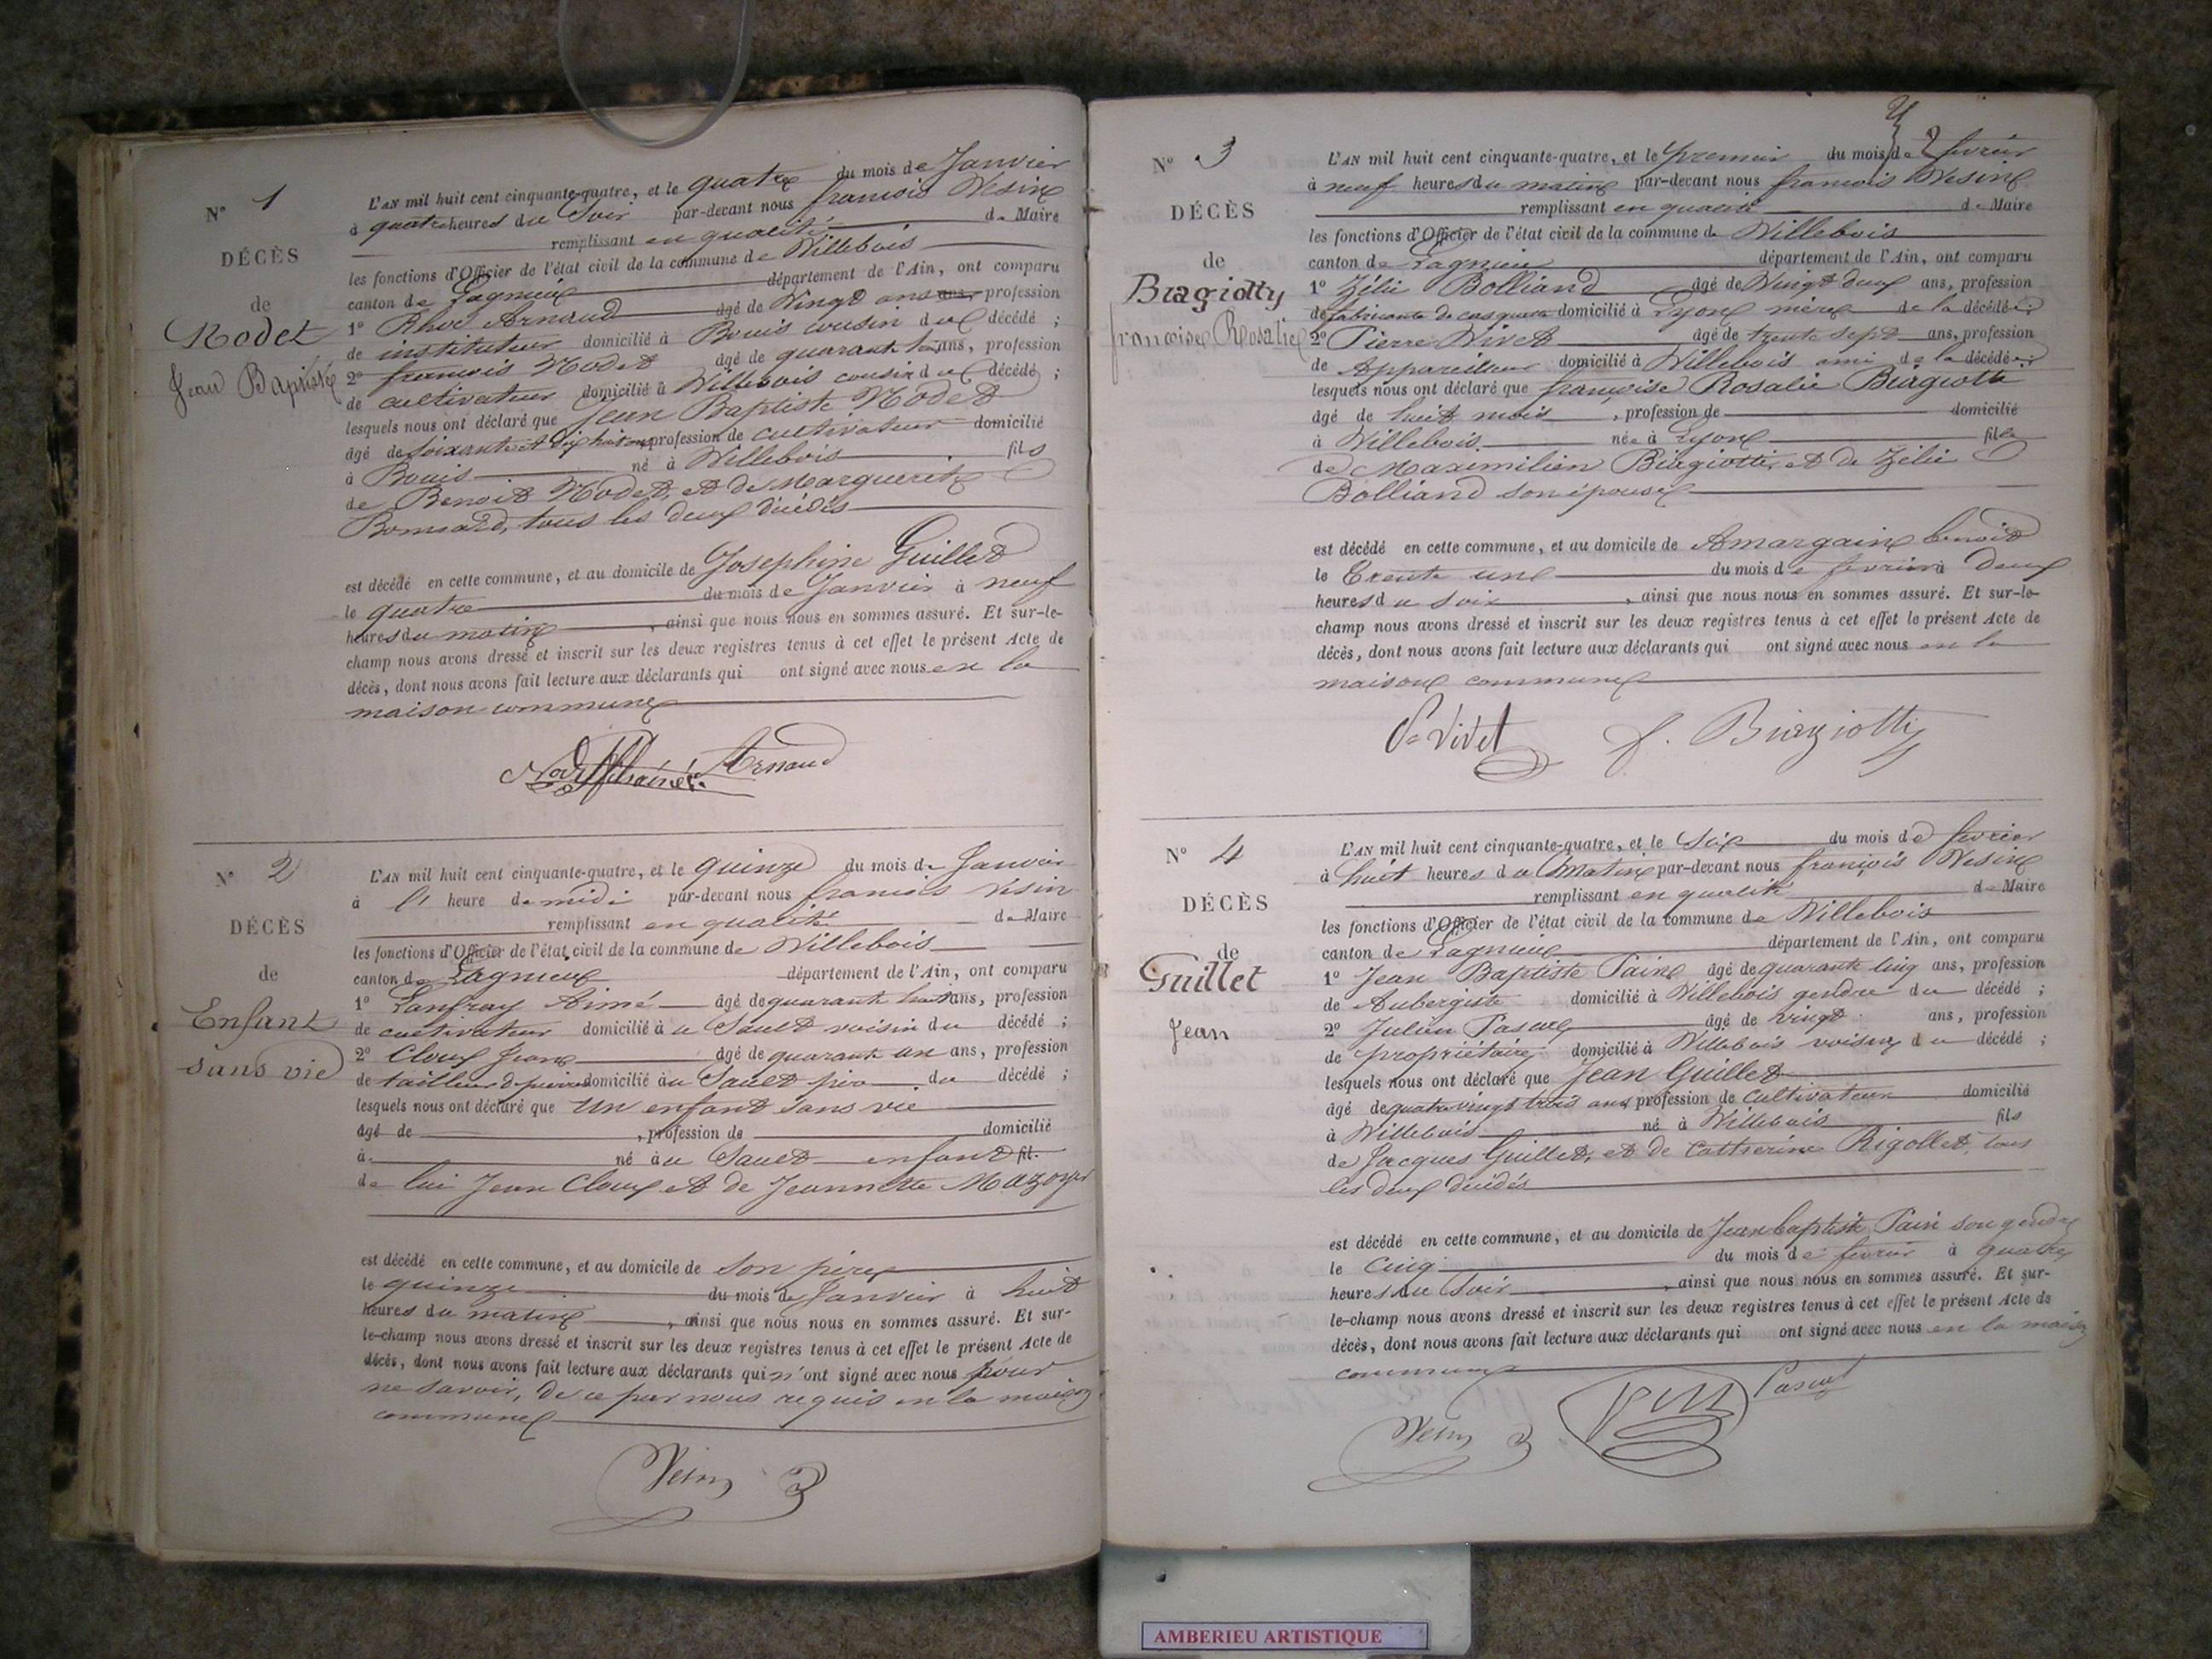 N° 1
DÉCÈS
de
Rodet
Jean Baptiste
L'AN mil huit cent cinquante-quatre, et le quatre du mois de Janvier
à quatre heures du Soir par-devant nous françois Vesin
remplissant en qualité de Maire
les fonctions d'Officier de l'état civil de la commune de Villebois
canton de Lagnieu département de l'Ain, ont comparu
1° Arnaud âgé de Vingt ans profession
de instituteur domicilié à Bouis cousin du décédé ;
2° françois Rodet âgé de quarante ans, profession
de cultivateur domicilié à Villebois cousin du décédé ;
lesquels nous ont déclaré que Jean Baptiste Rodet
âgé de soixante et dix huit ans profession de cultivateur domicilié
à Bouis né à Villebois fils
de Benoit Rodet, et de Marguerite
tous les deux décédés
est décédé en cette commune, et au domicile de Josephine Guillet
le quatre du mois de Janvier à neuf
heures du matin, ainsi que nous nous en sommes assuré. Et sur-le-
champ nous avons dressé et inscrit sur les deux registres tenus à cet effet le présent Acte de
décès, dont nous avons fait lecture aux déclarants qui ont signé avec nous en la
maison commune
Arnaud
N° 2
DÉCÈS
de
Enfant
sans vie
L'AN mil huit cent cinquante-quatre, et le quinze du mois de Janvier
à l' heure de midi par-devant nous francois Vésin
remplissant en qualité de Maire
les fonctions d'Officier de l'état civil de la commune de Villebois
canton de Lagnieu département de l'Ain, ont comparu
1° Lanfray Aimé âgé de quarante huit ans, profession
de cultivateur domicilié à u Sault voisin du décédé ;
2° Cloux Jean âgé de quarante un ans, profession
de tailleur d pierres domicilié au Sault père du décédé ;
lesquels nous ont déclaré que Un enfant sans vie
âgé de , profession de domicilié
à né au Sault enfant fil
de lui Jean Cloux et de Jeannette Mazoyer
est décédé en cette commune, et au domicile de son père
le quinze du mois de Janvier à huit
heures du matin, ainsi que nous nous en sommes assuré. Et sur-
le-champ nous avons dressé et inscrit sur les deux registres tenus à cet effet le présent Acte de
décès, dont nous avons fait lecture aux déclarants qui n'ont signé avec nous pour
ne savoir, de ce par nous requis en la maison
commune
Vesin
N° 3
DÉCÈS
de
Biagiotty
françoise Rosalie
L'AN mil huit cent cinquante-quatre, et le premier du mois de février
à neuf heures du matin par-devant nous francois Vesin
remplissant en qualité de Maire
les fonctions d'Officier de l'état civil de la commune de Villebois
canton de Lagnieu département de l'Ain, ont comparu
1° Zélie Bolliand âgé de Vingt deux ans, profession
de fabricante de casquette domicilié à Lyon mère de la décédée
2° Pierre Vivet âgé de trente sept ans, profession
de Appareilleur domicilié à Villebois ami de la décédée
lesquels nous ont déclaré que françoise Rosalie Biagiotti
âgé de huit mois, profession de domicilié
à Villebois née à Lyon fille
de Maximilien Biagiotti, et de Zélie
Bolliand son épouse
est décédé en cette commune, et au domicile de Amargain benoit
le Trente une du mois de février à Deux
heures du soir, ainsi que nous nous en sommes assuré. Et sur-le-
champ nous avons dressé et inscrit sur les deux registres tenus à cet effet le présent Acte de
décès, dont nous avons fait lecture aux déclarants qui ont signé avec nous en la
maison commune
P. Vivet Biagiotti
N° 4
DÉCÈS
de
Guillet
Jean
L'AN mil huit cent cinquante-quatre, et le Six du mois de février
à huit heures du Matin par-devant nous françois Vesin
remplissant en qualité de Maire
les fonctions d'Officier de l'état civil de la commune de Villebois
canton de Lagnieu département de l'Ain, ont comparu
1° Jean Baptiste Pain âgé de quarante cinq ans, profession
de Aubergiste domicilié à Villebois gendre du décédé ;
2° Julien Pascal âgé de vingt ans, profession
de propriétaire domicilié à Villebois voisin du décédé ;
lesquels nous ont déclaré que Jean Guillet
âgé de quatre vingt trois ans, profession de Cultivateur domicilié
à Villebois né à Villebois fils
de Jacques Guillet, et de Catherine Rigollet, tous
les deux décédés
est décédé en cette commune, et au domicile de Jean baptiste Pain son gendre
le Cinq du mois de février à quatre
heures du Soir, ainsi que nous nous en sommes assuré. Et sur-
le-champ nous avons dressé et inscrit sur les deux registres tenus à cet effet le présent Acte de
décès, dont nous avons fait lecture aux déclarants qui ont signé avec nous en la maison
commune
Vesin Pascal
AMBERIEU ARTISTIQUE